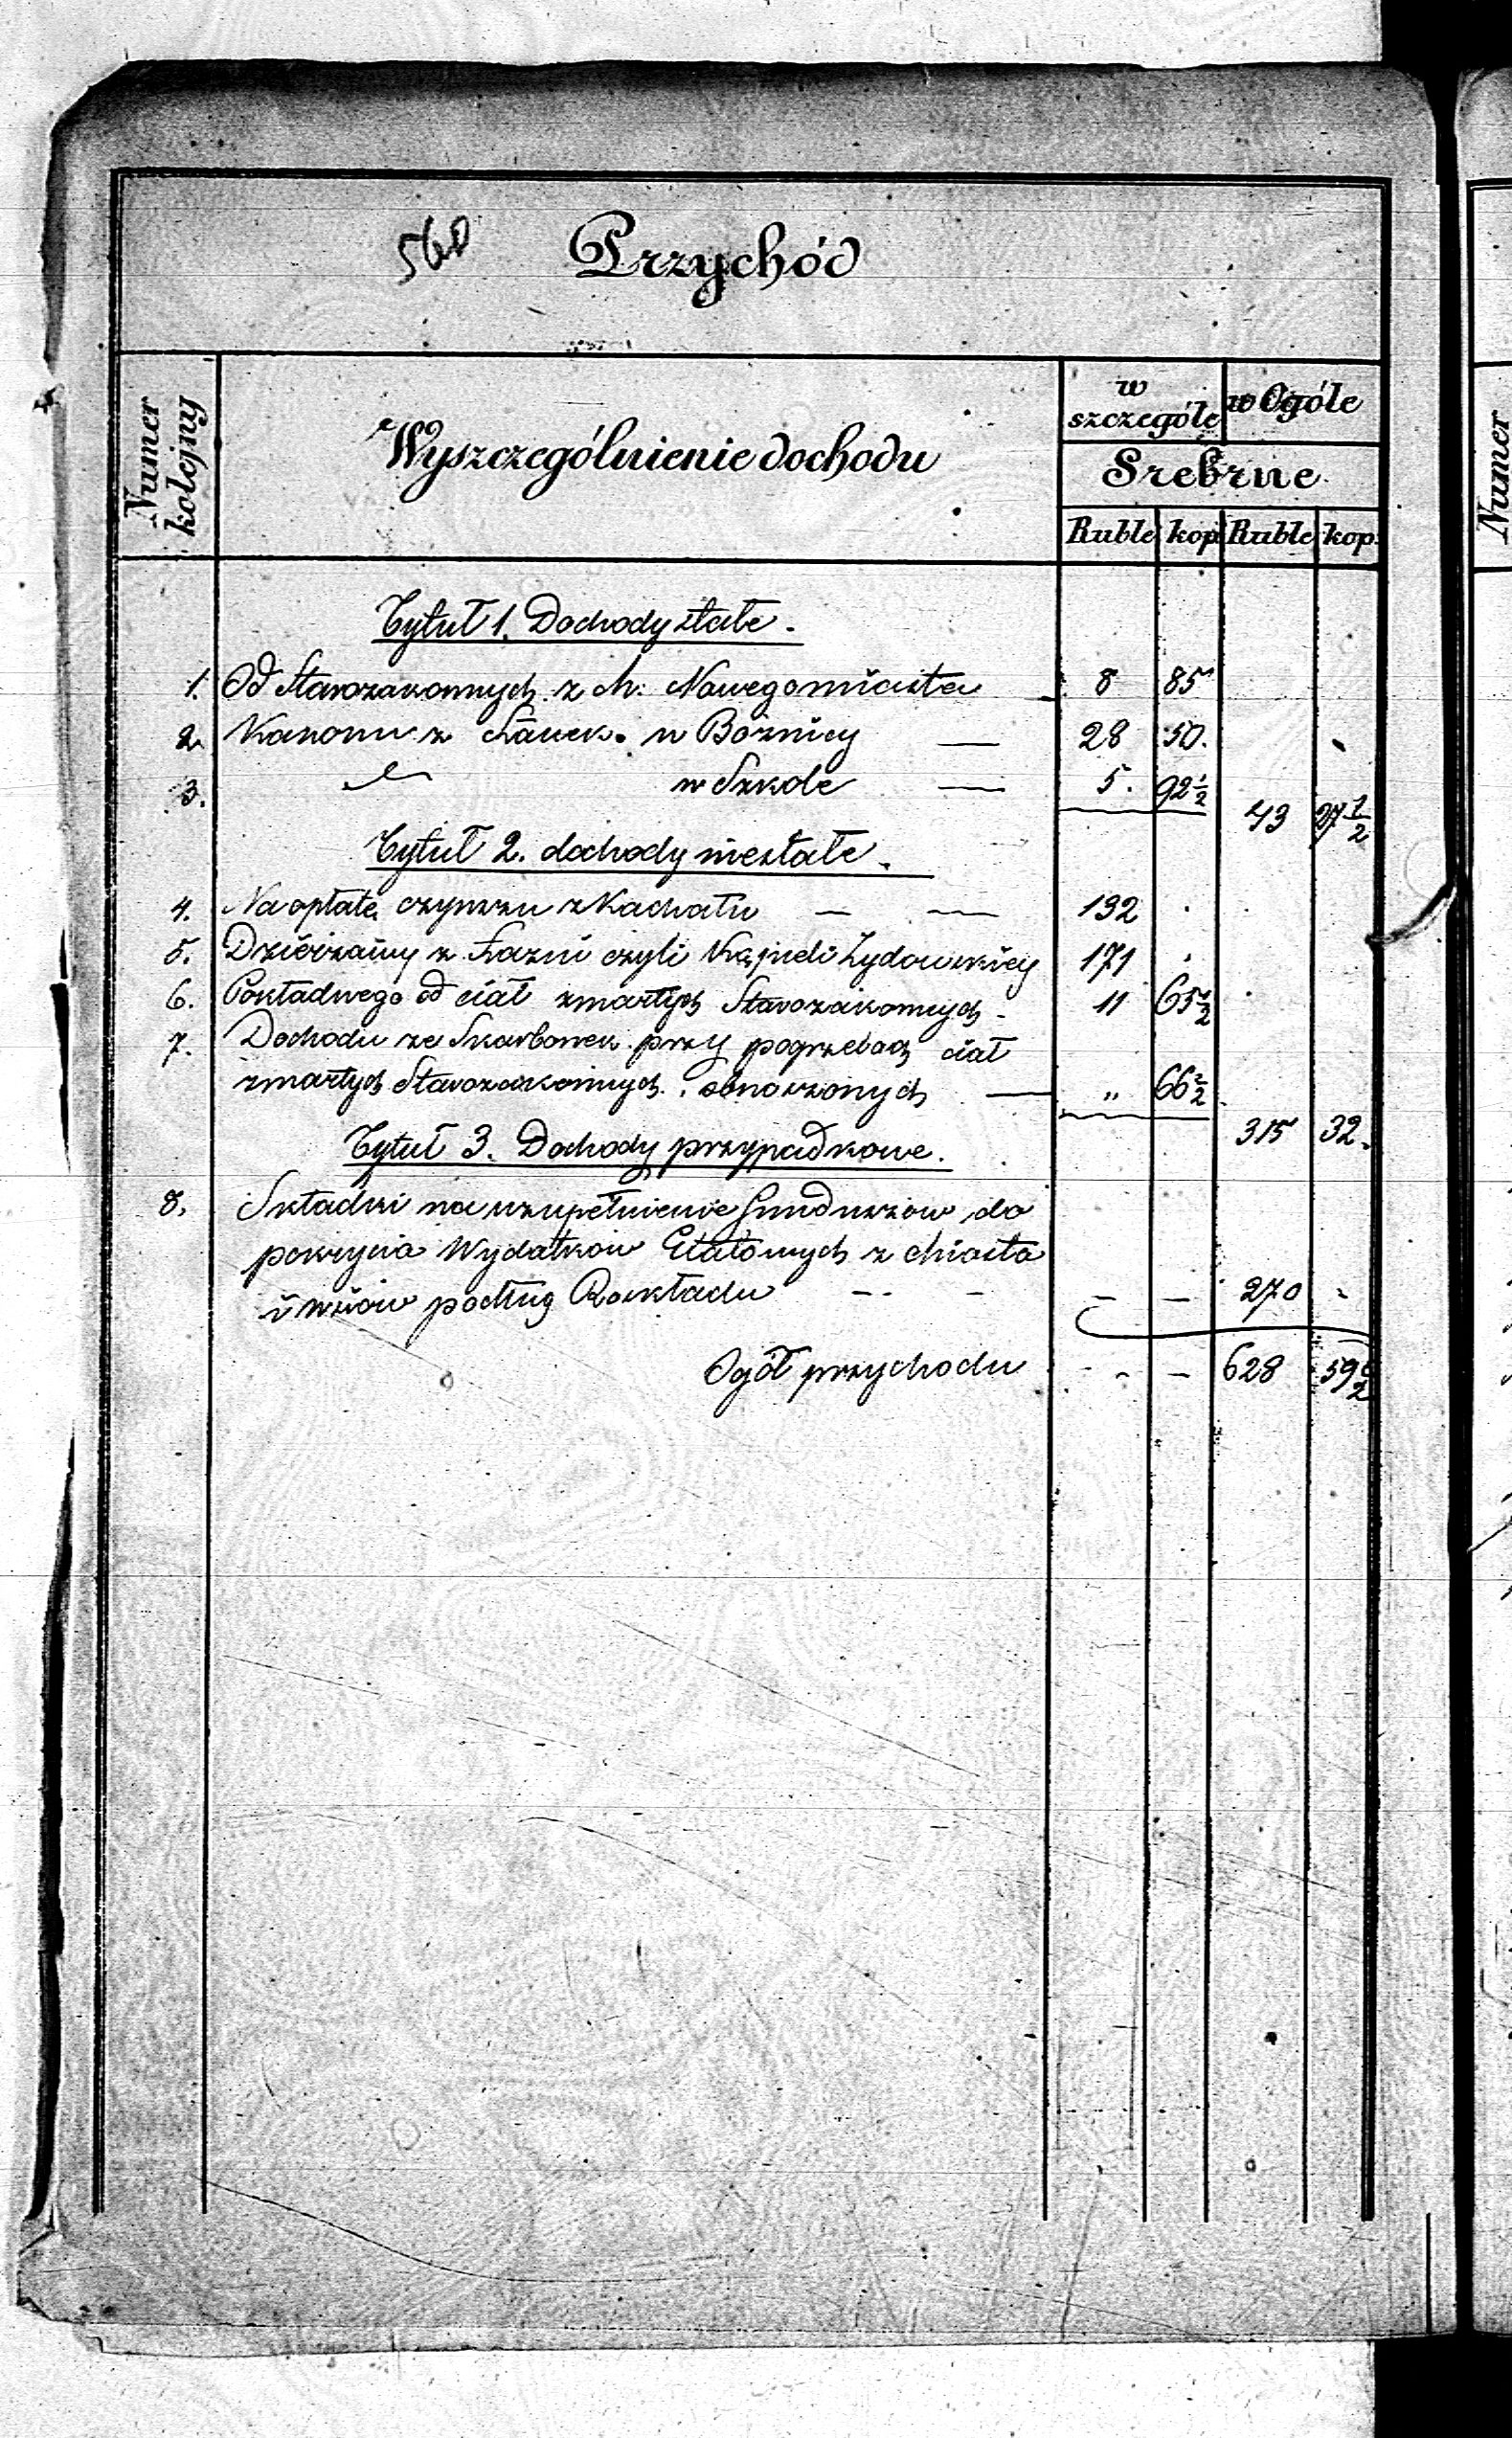 560 Przychód
Numer kolejny
Wyszczególnienie dochodu
w szczególe
w Ogóle
Srebrne
Ruble kop Ruble kop.
Tytuł 1. Dochody stałe.
1. Od Starozakonnych z M. Nowegomiasta 8 85
2. Kanonu z Ławek w Bóżnicy — 28 50.
3. w Szkole — 5. 92 1/2
43 27 1/2
Tytuł 2. dochody niestałe.
4. Na opłatę czynszu z Kachału — — 132 .
5. Dzierżawy z Łazni czyli Kąpieli Żydowskiey 171 .
6. Pokładnego od ciał zmarłych Starozakonnych - 11 65 1/2
7. Dochodu ze Skarbonek przy pogrzebach ciał
zmarłych Starozakonnych obnoszonych — " 66 1/2
315 32.
Tytuł 3. Dochody przypadkowe.
8. Składki na uzupełnienie funduszow do
pokrycia Wydatkow Etatowych z Miasta
i wsiow podług Rozkładu - - - — 270 -
Ogół przychodu - — 628 59 1/2
Numer